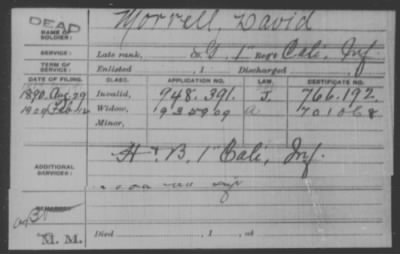 DEAD
NAME OF SOLDIER: Morrell, David
SERVICE: Late rank, Co. G, 1" Reg't Cali, Inf.
TERM OF SERVICE: Enlisted , 1 Discharged
DATE OF FILING. CLASS. APPLICATION NO. LAW. CERTIFICATE NO.
1890 Aug 29 Invalid, 948.391. J. 766.192.
1909 Feb 12 Widow, 935909 a. 701068
Minor,
ADDITIONAL SERVICES: H" B. 1" Cali, Inf.
REMARKS:
M. M. Died , 1 , at